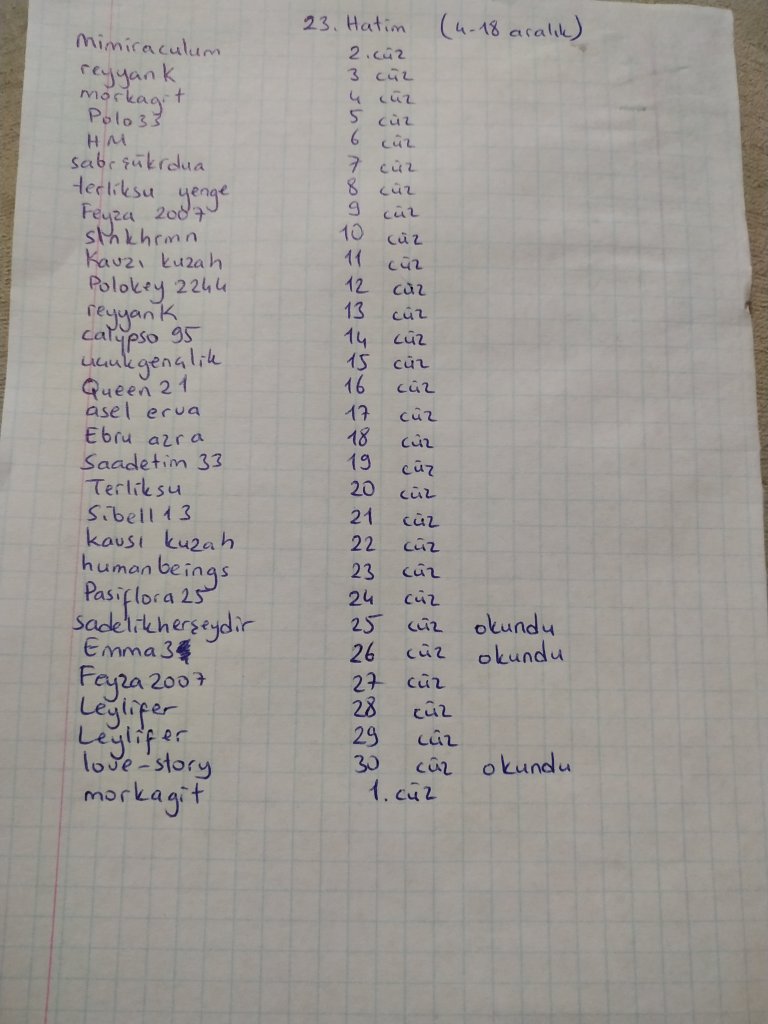 23. Hatim (4-18 aralık)
mimiraculum 2. cüz
reyyank 3 cüz
morkagıt 4 cüz
Polo33 5 cüz
HM 6 cüz
sabrşükrdua 7 cüz
terliksu yenge 8 cüz
Feyza 2007 9 cüz
slnkhrmn 10 cüz
Kavzı kuzah 11 cüz
Polokey 2244 12 cüz
reyyank 13 cüz
calypso 95 14 cüz
15 cüz
Queen 21 16 cüz
asel erva 17 cüz
Ebru azra 18 cüz
Saadetim 33 19 cüz
Terliksu 20 cüz
Sibell 13 21 cüz
kavsı kuzah 22 cüz
humanbeings 23 cüz
Pasiflora 25 24 cüz
sadelikherşeydir 25 cüz okundu
Emma3 26 cüz okundu
Feyza2007 27 cüz
Leylifer 28 cüz
Leylifer 29 cüz
love-story 30 cüz okundu
morkagıt 1. cüz